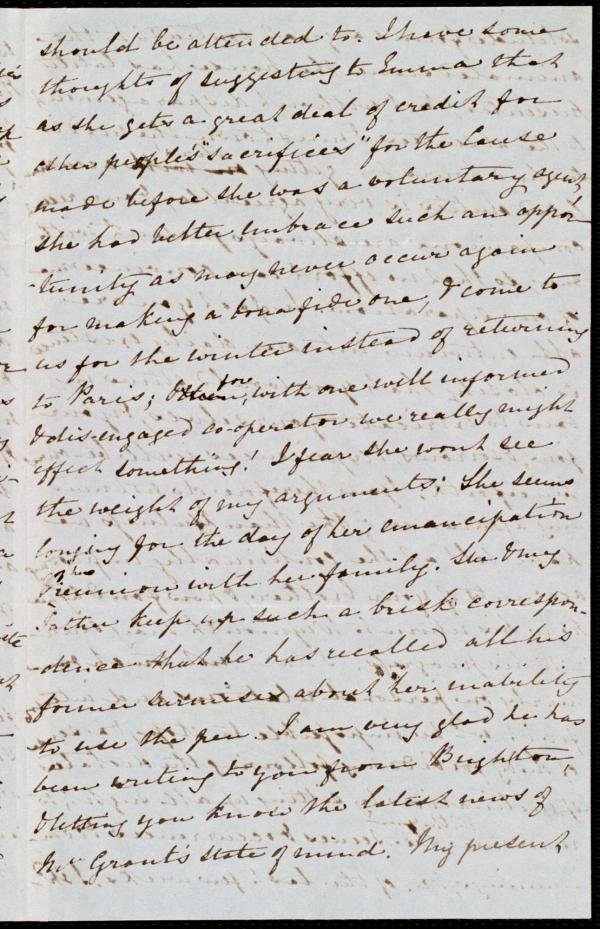 should be attended to. I have some
thoughts of suggesting to Emma that
as she gets a great deal of credit for
other people's "sacrifices" for the Cause
made before she was a voluntary agent,
she had better embrace such an oppor-
-tunity as may never occur again
for making a bona fide one, & come to
us for the winter instead of returning
to Paris; for, with one well informed
& dis-engaged co-operator we really might
effect something! I fear she wont see
the weight of my arguments; She seems
longing for the day of her emancipation
& the reunion with her family. She & my
Father keep up such a brisk correspon-
-dence that he has recalled all his
former surmises about her inability
to use the pen. I am very glad he has
been writing to you from Brighton,
& letting you know the latest news of
Mr Grant's state of mind. My present